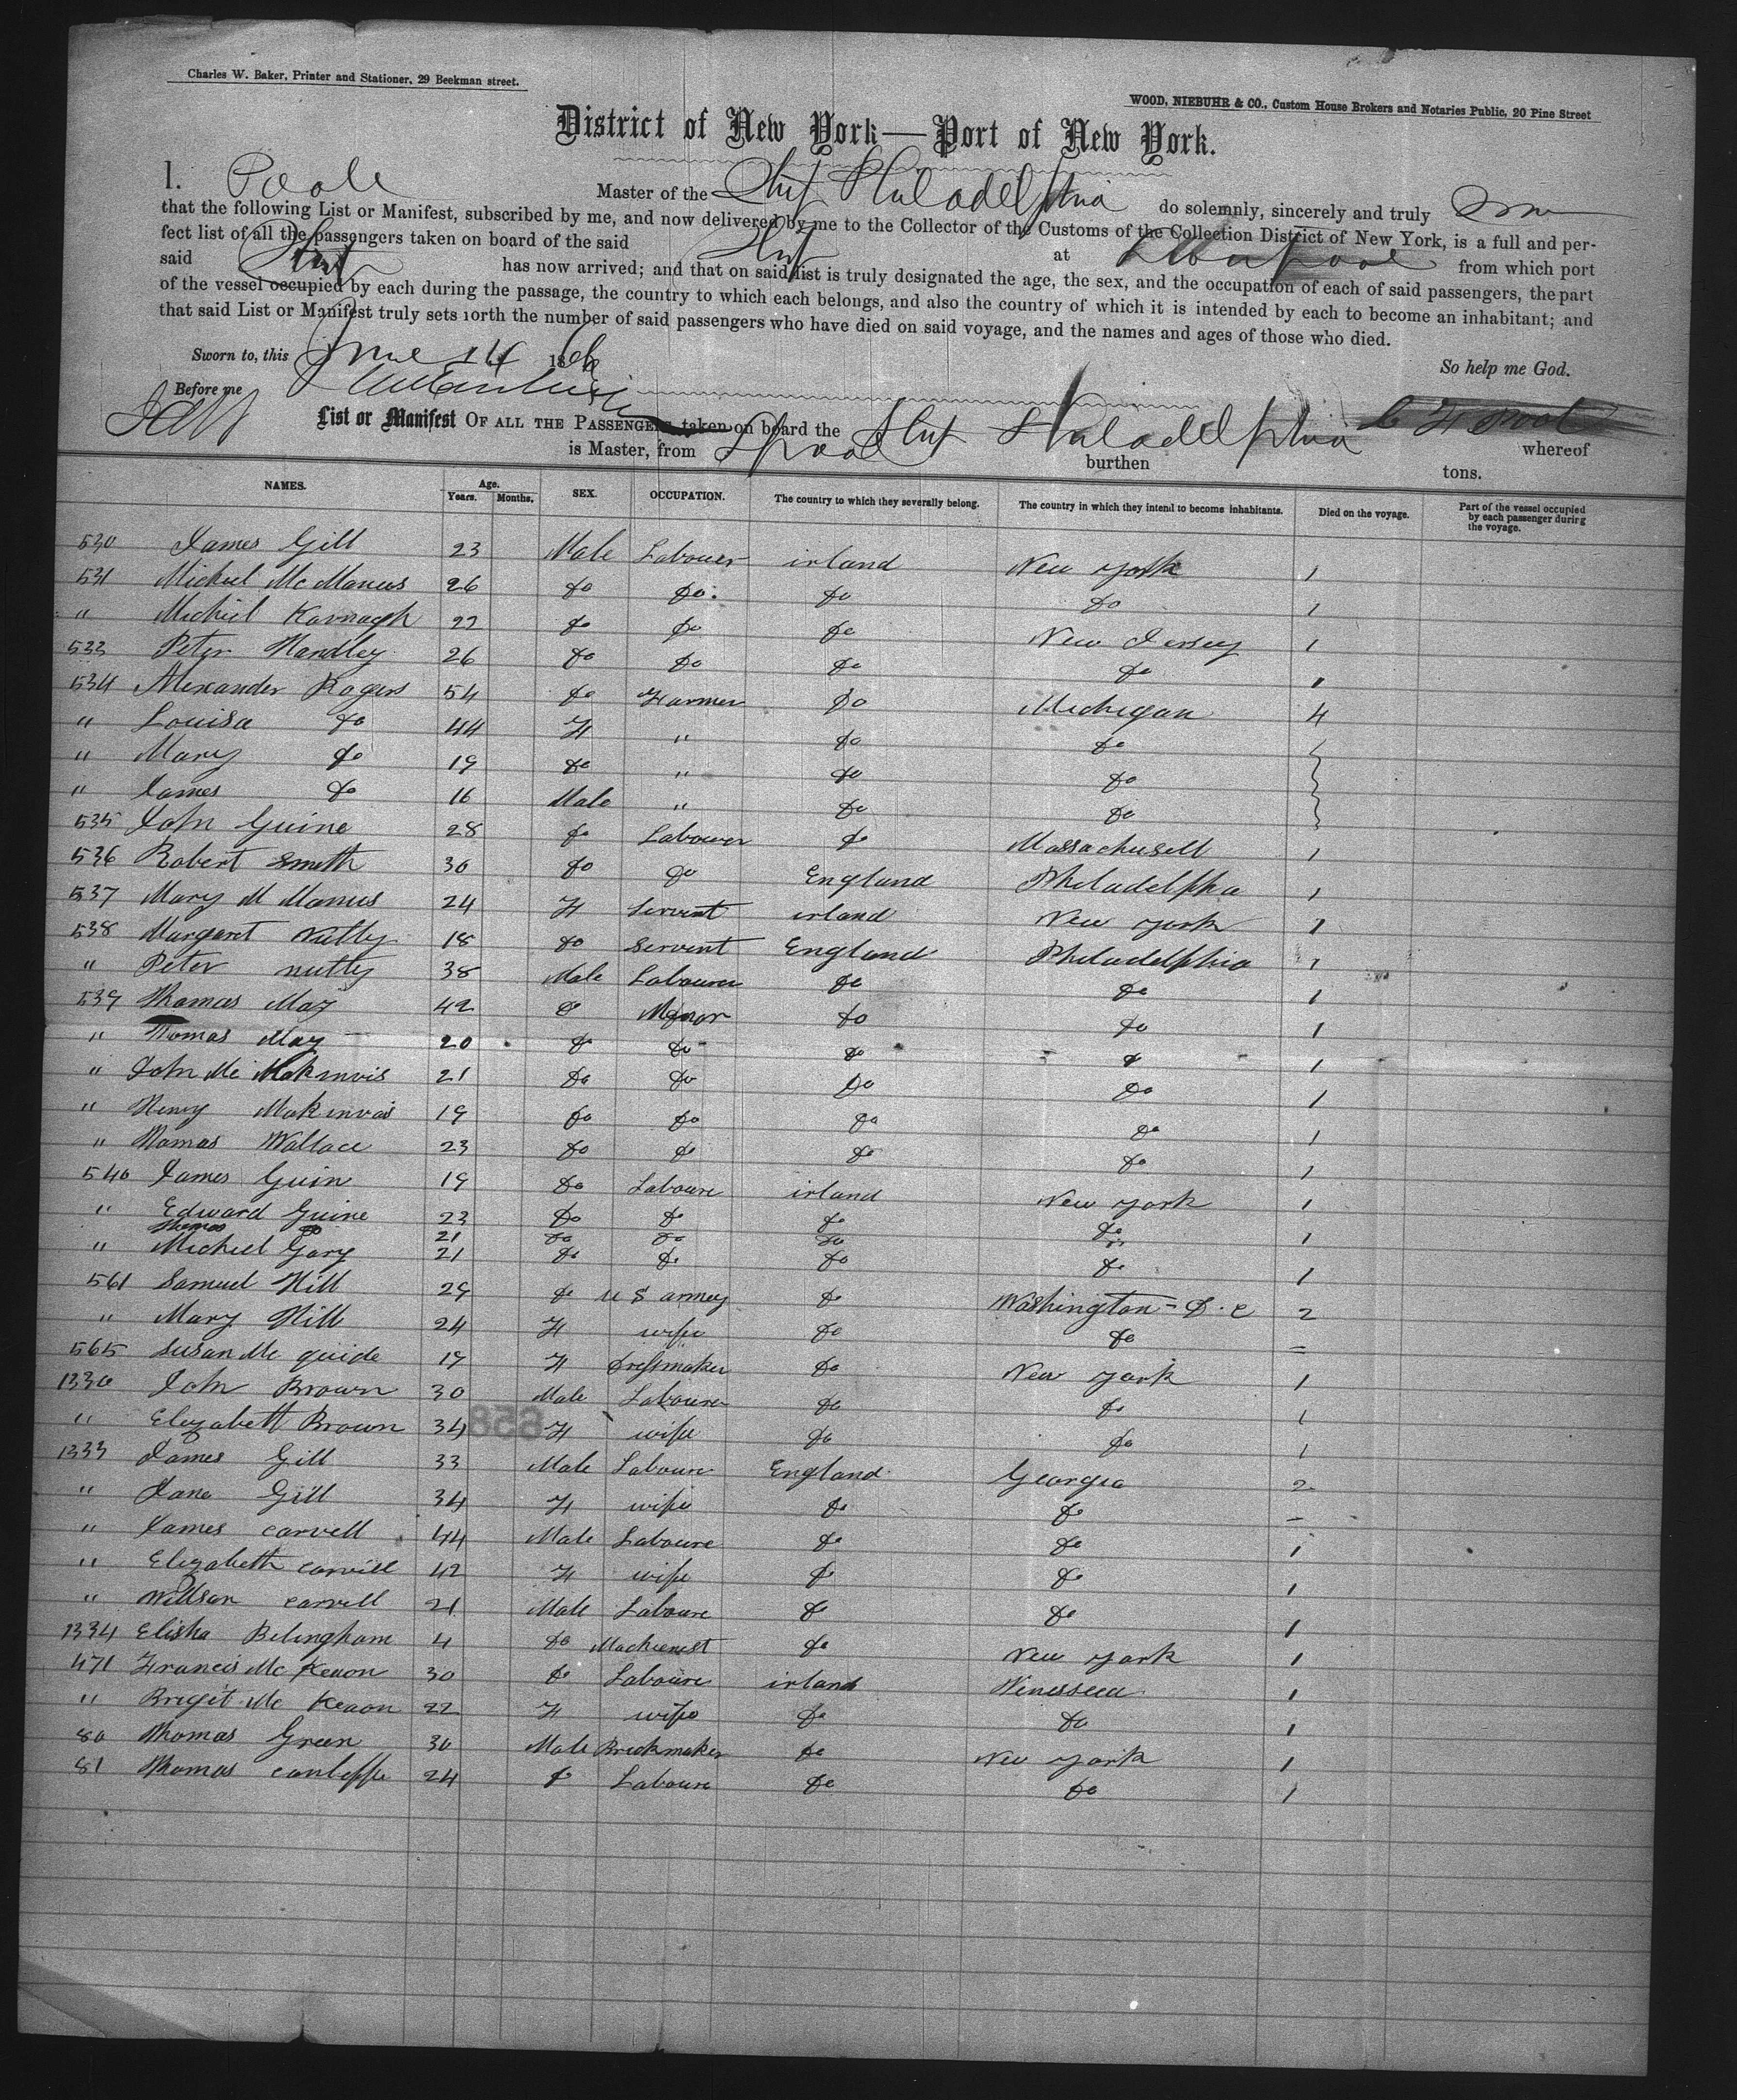 Charles W. Baker, Printer and Stationer, 29 Beekman street.
WOOD, NIEBUHR & CO., Custom House Brokers and Notaries Public, 20 Pine Street
District of New York—Port of New York.
I. Poole Master of the Ship Philadelphia do solemnly, sincerely and truly
that the following List or Manifest, subscribed by me, and now delivered by me to the Collector of the Customs of the Collection District of New York, is a full and per-
fect list of all the passengers taken on board of the said Ship at Liverpool from which port
said Ship has now arrived; and that on said list is truly designated the age, the sex, and the occupation of each of said passengers, the part
of the vessel occupied by each during the passage, the country to which each belongs, and also the country of which it is intended by each to become an inhabitant; and
that said List or Manifest truly sets forth the number of said passengers who have died on said voyage, and the names and ages of those who died.
Sworn to, this June 14 1866 So help me God.
Before me
List or Manifest OF ALL THE PASSENGERS taken on board the Ship Philadelphia whereof
is Master, from Lpool burthen tons.
NAMES. Age. Years. Months. SEX. OCCUPATION. The country to which they severally belong. The country in which they intend to become inhabitants. Died on the voyage. Part of the vessel occupied by each passenger during the voyage.
530 James Gill 23 Male Labouer irland New york 1
531 Michiel McManus 26 do do do do 1
" Michiel Kavnagh 22 do do do New Jersey 1
533 Peter Handley 26 do do do do 1
534 Alexander Rogers 54 do Farmer do Michigan 4
" Louisa do 44 F " do do
" Mary do 19 do " do do
" James do 16 Male " do do
535 John Guine 28 do Labouer do Massachusett 1
536 Robert Smith 30 do do England Philadelpha 1
537 Mary M Manus 24 F Servent irland New york 1
538 Margaret Nutty 18 do Servent England Philadelphia 1
" Peter nutty 38 Male Labourer do do 1
539 Thomas May 42 do do do 1
" Thomas May 20 do do do do 1
" John Mc Makinvis 21 do do do do 1
" Henry Makinvais 19 do do do do 1
" Thomas Wallace 23 do do do do 1
540 James Guin 19 do Laboure irland New york 1
" Edward Guine 23 do do do do 1
Thomas do 21 do do do do
" Michiel Gary 21 do do do do 1
561 Samuel Hill 29 do U S armey do Washington - D.C 2
" Mary Hill 24 F wife do do -
565 Susan Mc quide 19 F Dressmaker do New york 1
1330 John Brown 30 Male Laboure do do 1
" Elezabett Brown 34 F wife do do 1
1333 James Gill 33 Male Laboure England Georgia 2
" Jane Gill 34 F wife do do -
" James carvell 44 Male Laboure do do 1
" Elezabeth carvill 42 F wife do do 1
" Willson carvell 21 Male Laboure do do 1
1334 Elisha Belingham 4 do Machienest do New york 1
471 Francis Mc Keaon 30 do Laboure irland 1
" Bregit Mc Keaon 22 F wife do do 1
80 Thomas Green 30 Male Breckmaker do New york 1
81 Thomas 24 do Laboure do do 1